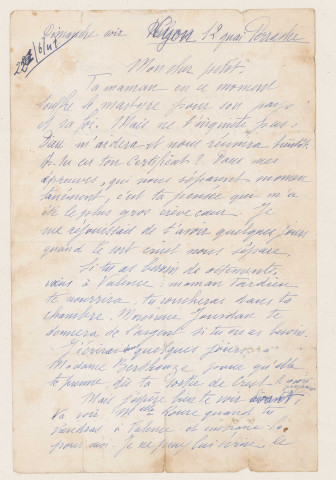 Dimanche soir Lyon 12 quai Perrache
22/6/47
Mon cher petit.
Ta maman en ce moment
souffre le martyre pour son pays
et sa foi. Mais ne t'inquiète pas.
Dieu m'aidera et nous réunira bientôt.
As tu eu ton Certificat? Dans mes
épreuves, qui nous séparent momen
tanément, c'est ta pensée qui m'a
été le plus gros crève cœur. Je
me réjouissais de t'avoir quelques jours
quand le sort cruel nous sépare.
Si tu as besoin de
viens à Valence: maman Tardieu
te nourrira, tu coucheras dans ta
chambre. Monsieur Jourdan te
donnera de l'argent si tu en as besoin.
J'écrirai quelques jours
Madame pour qu'elle
te prenne, dès ta sortie de
Mais j'espère bien te voir avant.
Va voir Mlle Laure quand tu
viendras à Valence et
pour moi. Je ne puis lui écrire, le